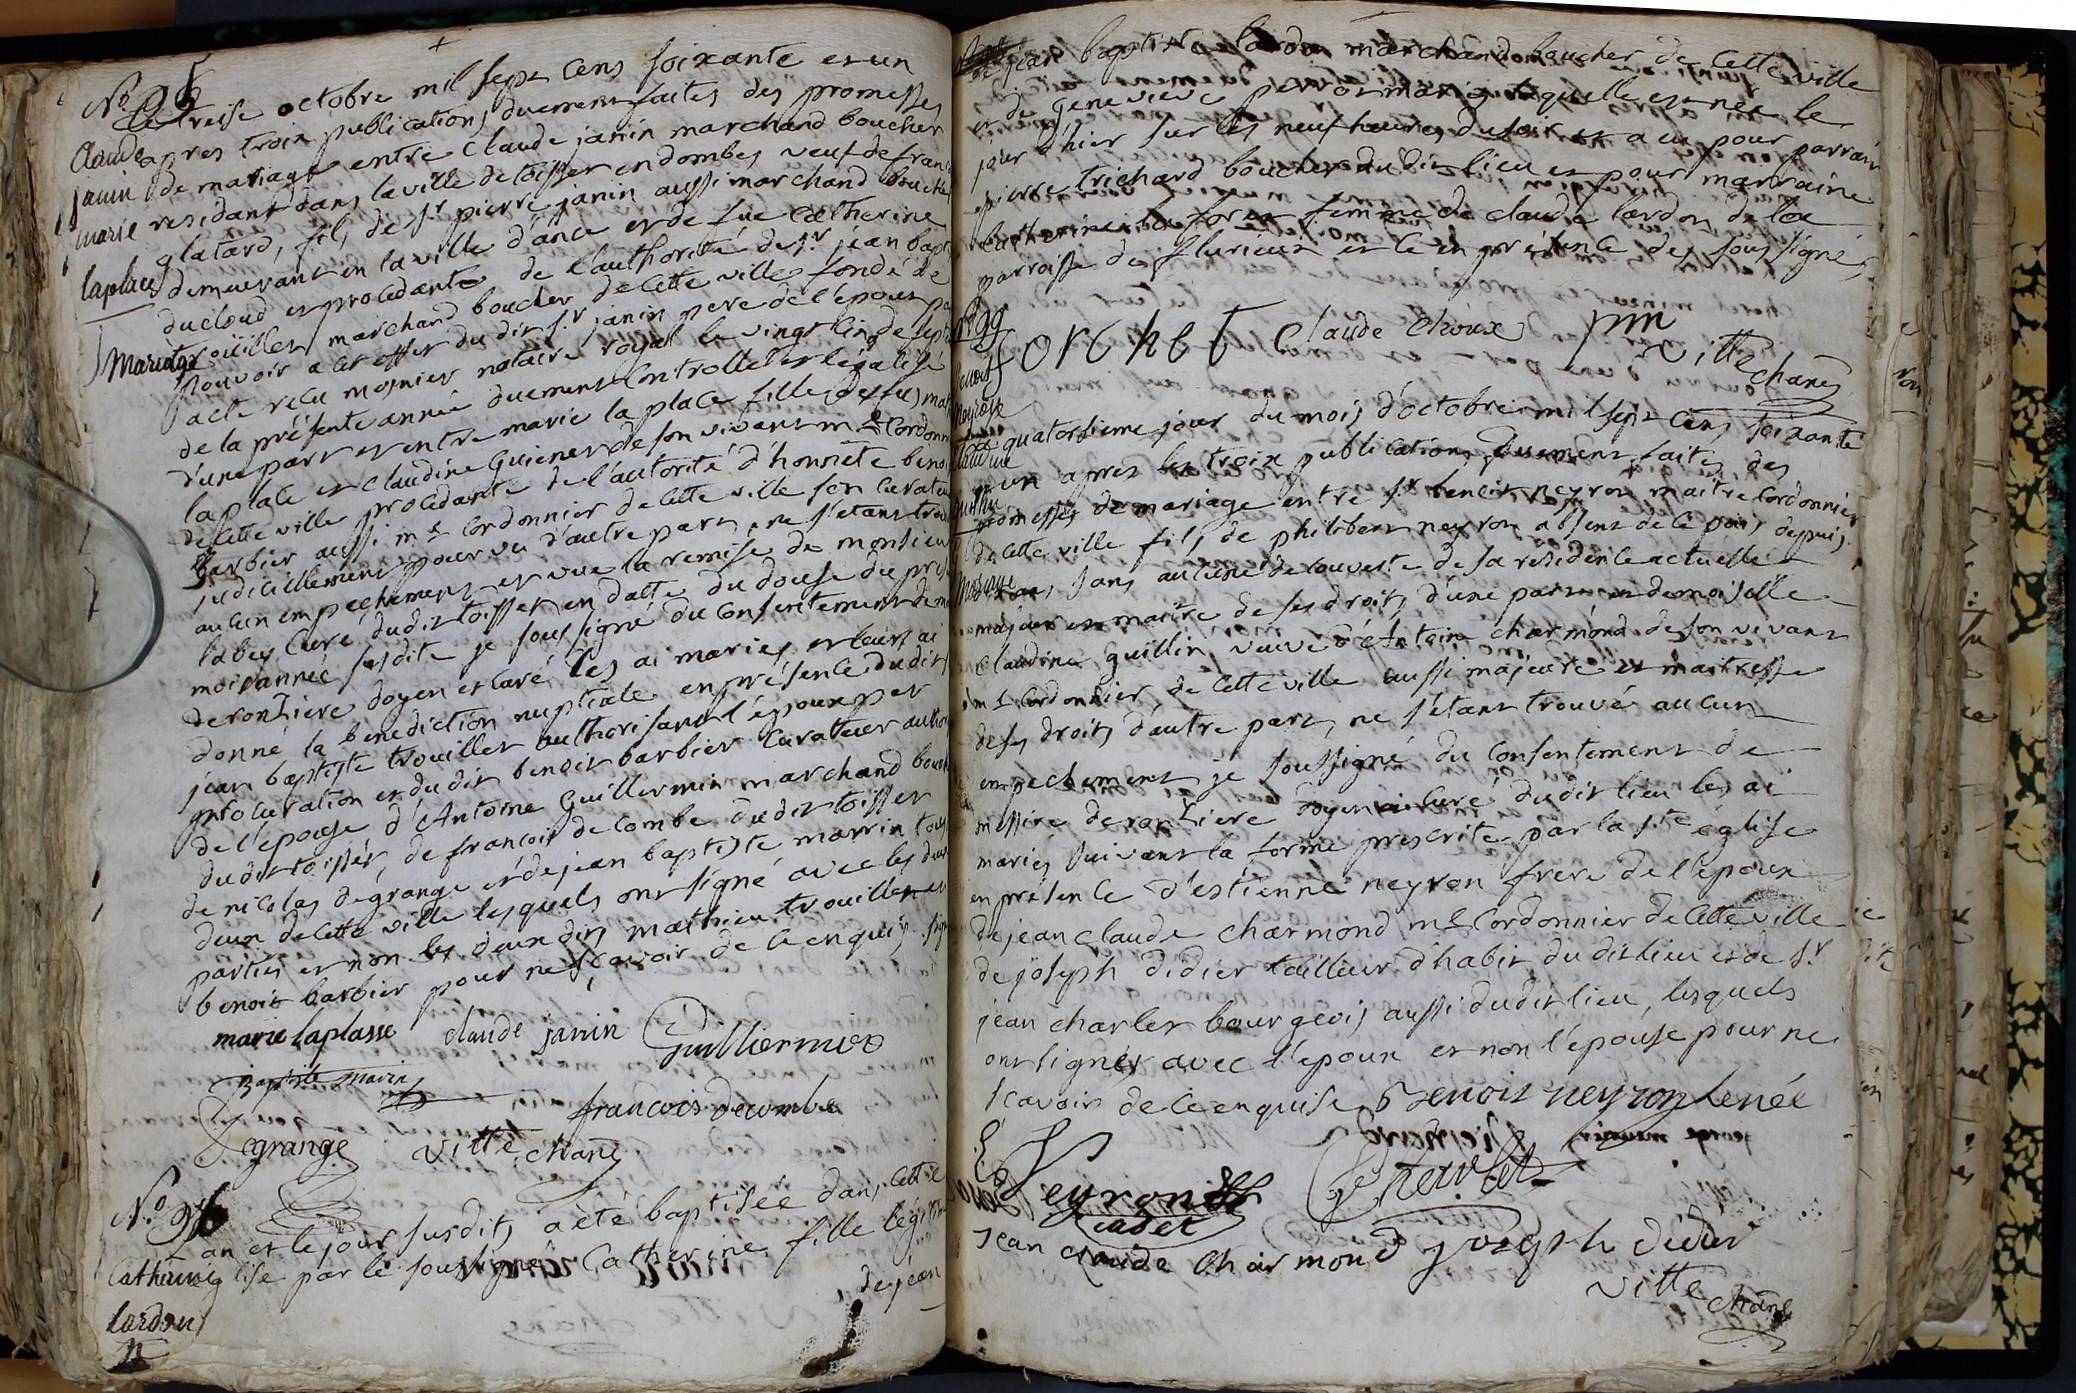 No 95
Claude
janin
marié
laplace
Mariage
Le treise octobre mil sept cens soixante et un
apres trois publications duement faites des promesses
de mariage entre Claude janin marchand boucher
residant dans la ville de toissey en dombes veuf de fran
glatard, fils de Sr pierre janin aussi marchand boucher
demeurant en la ville d'ance et de fue Catherine
ducloud et procedante de l'authorité de Sr jean bapt
trouillet marchand boucher de cette ville fondé de
pouvoir a cet effet du dit Sr janin pere de l'epoux pa
acte recu mosnier notaire royal le vingt cinq de sept
de la présente année duement controllé et légalisé
d'une part et entre marie la place fille de
la place et claudine Guienet de son vivant me Cordonn
de cette ville procedante de l'autorité d'honnete beno
Barbier aussi me Cordonnier de cette ville son curateur
judiciellement pourvu d'autre part, ne s'etant trou
aucun empechement et vue la remise de monsieur
labey Curé dudit toissey en datte du douse du pre
mois année susdite je soussigné du Consentement de
deronziere doyen et curé les ai mariés et leurs ai
donné la benediction nuptiale en présence du dit
jean baptiste trouillet authorisant l'époux par
procuration et dudit benoit barbier Curateur autho
de l'epouse d'Antoine Guillermin marchand bouch
dudit toissey, de francois decombe dudit toissey
de nicolas degrange et de jean baptiste marrin tous
deux de cette ville lesquels ont signé avec les deux
parties et non les deux dits mathieu trouillet et
benoit barbier pour ne sçavoir de ce enquis.
marie laplasse claude janin Guilliermin
Baptiste marin
francois decombe
Degrange vitte chane
No 96
Catherine
lardon
L'an et le jour susdits a été baptisée dans cette
eglise par le soussigné Catherine fille légitim
de jean
de jean baptiste lardon marchand boucher de cette ville
et de genevieve perrot mariés laquelle est née le
jour d'hier sur les neuf heures du soir et a eu pour parrain
pierre trichard boucher du dit lieu et pour marraine
Catherine laforex femme de claude lardon de la
parroisse de flurieux et ce en présence des soussignés
forchet Claude choux
vitte
chane
No 99
benoit
neyron
Claudine
guillin
Mariage
Le quatorsieme jour du mois d'octobre mil sept cens soixante
et un apres les troix publications duement faites des
promesses de mariage entre Sr benoit neyron maitre Cordonnier
de cette ville fils de philibert neyron absent de ce pais depuis
sans aucune decouverte de sa residence actuelle
majeur et maitre de ses droits d'une part et demoiselle
claudine guillin veuve d'Antoine charmond de son vivant
me Cordonnier de cette ville aussi majeure et maitresse
de ses droits d'autre part, ne s'etant trouvé aucun
empechement je soussigné du Consentement de
messire deronziere doyen et curé dudit lieu les ai
mariés suivant la forme prescrite par la Ste eglise
en présence d'estienne neyron frere de l'epoux
de jean claude charmond me Cordonnier de cette ville
de joseph didier tailleur d'habit du dit lieu et de Sr
jean charles bourgeois aussi dudit lieu, lesquels
ont signés avec l'epoux et non l'épouse pour ne
scavoir de ce enquise Benoit neyron lenée
E Neyron
cadet
jean claude Charmond joseph didier
vitte chane